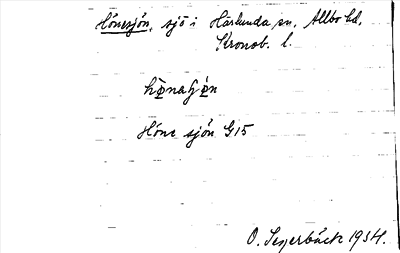 Hönesjön, sjö i Härlunda sn, Allbo hd,
Kronob. l.
Höne sjön G15
O. Segerbäck 1934.